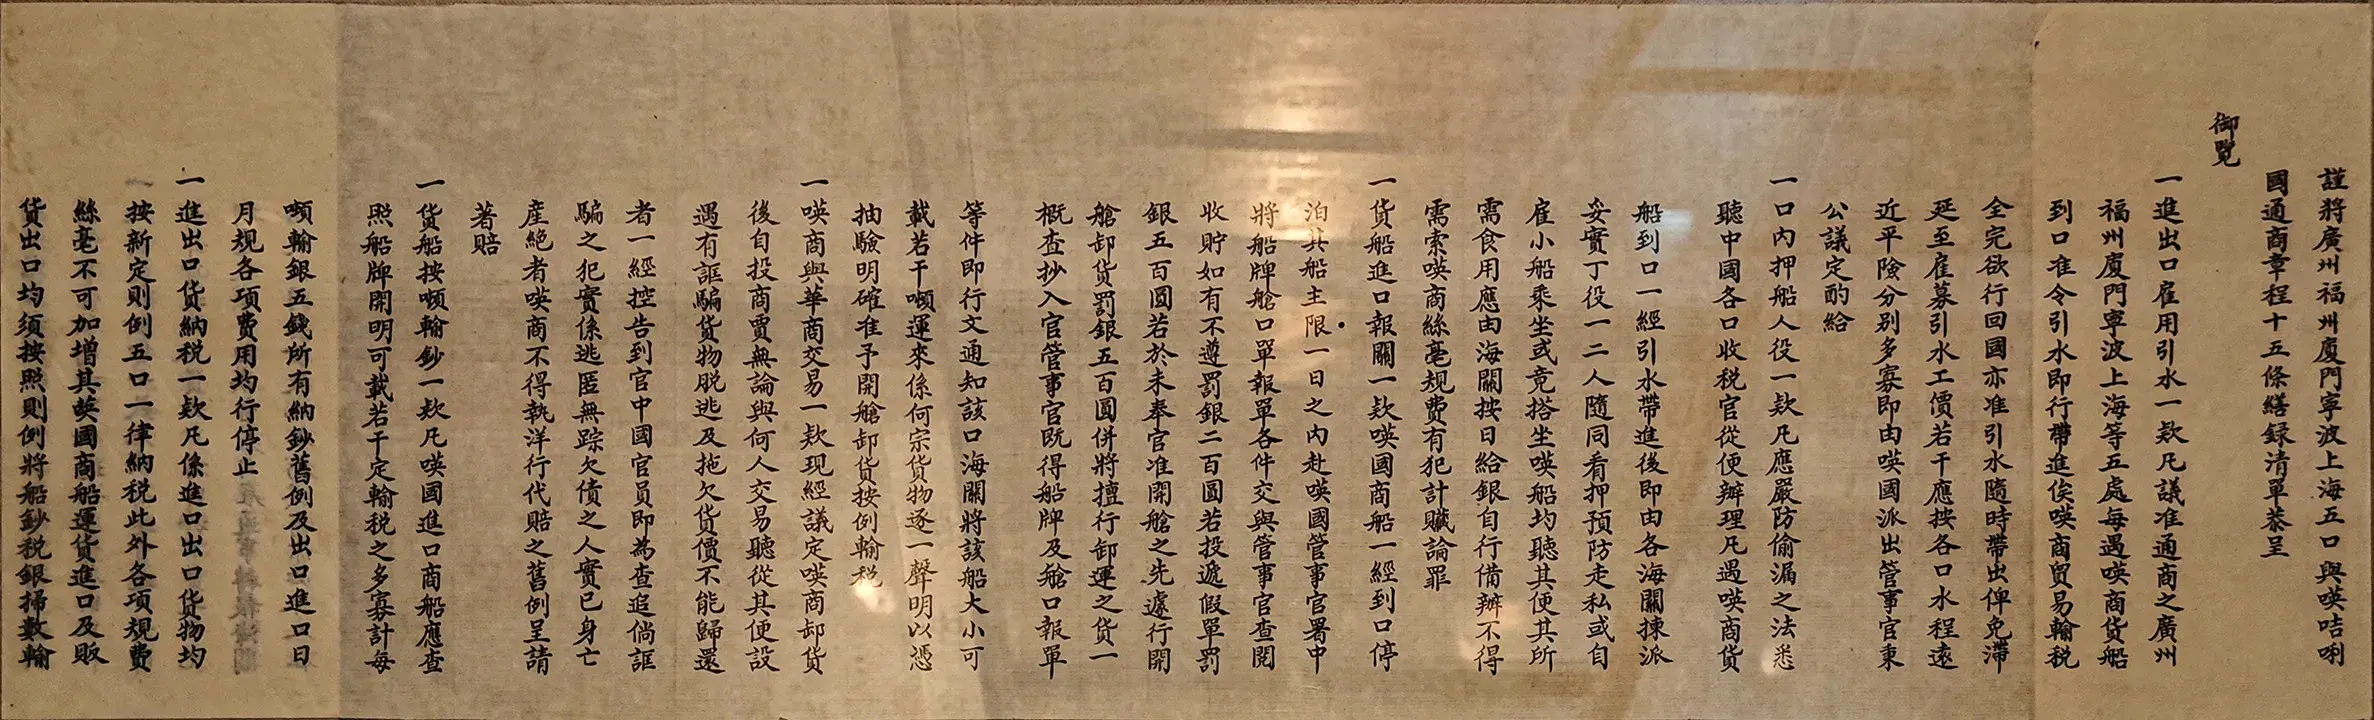 謹將廣州福州廈門寧波上海五口與𠸄咭唎
國通商章程十五條繕録清單恭呈
御覽
一進出口雇用引水一欵凡議准通商之廣州
福州廈門寧波上海等五處每遇𠸄商貨船
到口准令引水即行帶進俟𠸄商貿易輸税
全完欲行回國亦准引水隨時帶出俾免滯
延至雇募引水工價若干應按各口水程遠
近平險分別多寡即由𠸄國派出管事官秉
公議定酌給
一口內押船人役一欵凡應嚴防偷漏之法悉
聽中國各口收税官從便辦理凡遇𠸄商貨
船到口一經引水帶進後即由各海關揀派
妥實丁役一二人隨同看押預防走私或自
雇小船乘坐或竟搭坐𠸄船均聽其便其所
需食用應由海關按日給銀自行備辦不得
需索𠸄商絲毫規費有犯計贓論罪
一貨船進口報關一欵𠸄國商船一經到口停
泊其船主限一日之內赴𠸄國管事官署中
將船牌艙口單報單各件交與管事官查閱
收貯如有不遵罰銀二百圓若投遞假單罰
銀五百圓若於未奉官准開艙之先遽行開
艙卸貨罰銀五百圓併將擅行卸運之貨一
概查抄入官管事官既得船牌及艙口報單
等件即行文通知該口海關將該船大小可
載若干噸運來係何宗貨物逐一聲明以憑
抽驗明確准予開艙卸貨按例輸税
一𠸄商與華商交易一欵現經議定𠸄商卸貨
後自投商賈無論與何人交易聽從其便設
遇有誆騙貨物脫逃及拖欠貨價不能歸還
者一經控告到官中國官員即為查追倘誆
騙之犯實係逃匿無踪欠債之人實已身亡
產絕者𠸄商不得執洋行代賠之舊例呈請
著賠
一貨船按噸輸鈔一欵凡𠸄國進口商船應查
照船牌開明可載若干定輸税之多寡計每
噸輸銀五錢所有納鈔舊例及出口進口日
月規各項費用均行停止
一進出口貨納税一欵凡係進口出口貨物均
按新定則例五口一律納税此外各項規費
絲毫不可加增其𠸄國商船運貨進口及販
貨出口均須按照則例將船鈔税銀掃數輸